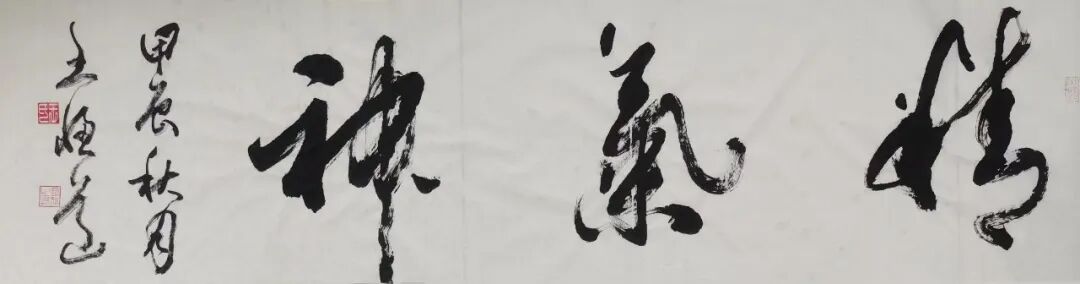 精氣神
甲辰秋月
王